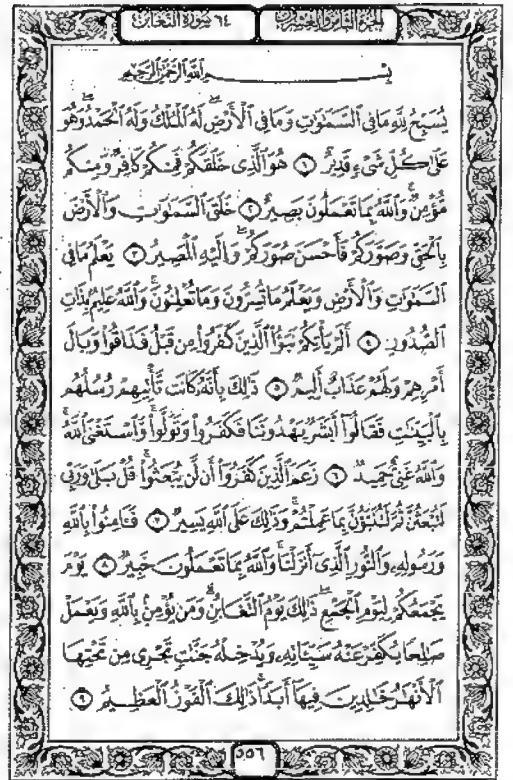 الجزء الثامن والعشرون ٦٤ سورة التغابن
بسم الله الرحمن الرحيم
يُسَبِّحُ لِلَّهِ مَا فِي السَّمَٰوَٰتِ وَمَا فِي الْأَرْضِ ۖ لَهُ الْمُلْكُ وَلَهُ الْحَمْدُ ۖ وَهُوَ
عَلَىٰ كُلِّ شَيْءٍ قَدِيرٌ ١ هُوَ الَّذِي خَلَقَكُمْ فَمِنكُمْ كَافِرٌ وَمِنكُم
مُّؤْمِنٌ ۚ وَاللَّهُ بِمَا تَعْمَلُونَ بَصِيرٌ ٢ خَلَقَ السَّمَٰوَٰتِ وَالْأَرْضَ
بِالْحَقِّ وَصَوَّرَكُمْ فَأَحْسَنَ صُوَرَكُمْ ۖ وَإِلَيْهِ الْمَصِيرُ ٣ يَعْلَمُ مَا فِي
السَّمَٰوَٰتِ وَالْأَرْضِ وَيَعْلَمُ مَا تُسِرُّونَ وَمَا تُعْلِنُونَ ۚ وَاللَّهُ عَلِيمٌ بِذَاتِ
الصُّدُورِ ٤ أَلَمْ يَأْتِكُمْ نَبَؤُا۟ الَّذِينَ كَفَرُوا۟ مِن قَبْلُ فَذَاقُوا۟ وَبَالَ
أَمْرِهِمْ وَلَهُمْ عَذَابٌ أَلِيمٌ ٥ ذَٰلِكَ بِأَنَّهُ كَانَت تَّأْتِيهِمْ رُسُلُهُم
بِالْبَيِّنَٰتِ فَقَالُوٓا۟ أَبَشَرٌ يَهْدُونَنَا فَكَفَرُوا۟ وَتَوَلَّوا۟ ۚ وَّاسْتَغْنَى اللَّهُ ۚ
وَاللَّهُ غَنِيٌّ حَمِيدٌ ٦ زَعَمَ الَّذِينَ كَفَرُوٓا۟ أَن لَّن يُبْعَثُوا۟ ۚ قُلْ بَلَىٰ وَرَبِّي
لَتُبْعَثُنَّ ثُمَّ لَتُنَبَّؤُنَّ بِمَا عَمِلْتُمْ ۚ وَذَٰلِكَ عَلَى اللَّهِ يَسِيرٌ ٧ فَـَٔامِنُوا۟ بِاللَّهِ
وَرَسُولِهِ وَالنُّورِ الَّذِيٓ أَنزَلْنَا ۚ وَاللَّهُ بِمَا تَعْمَلُونَ خَبِيرٌ ٨ يَوْمَ
يَجْمَعُكُمْ لِيَوْمِ الْجَمْعِ ۖ ذَٰلِكَ يَوْمُ التَّغَابُنِ ۗ وَمَن يُؤْمِن بِاللَّهِ وَيَعْمَلْ
صَٰلِحًا يُكَفِّرْ عَنْهُ سَيِّـَٔاتِهِ وَيُدْخِلْهُ جَنَّٰتٍ تَجْرِي مِن تَحْتِهَا
الْأَنْهَٰرُ خَٰلِدِينَ فِيهَآ أَبَدًا ۚ ذَٰلِكَ الْفَوْزُ الْعَظِيمُ ٩
٥٥٦